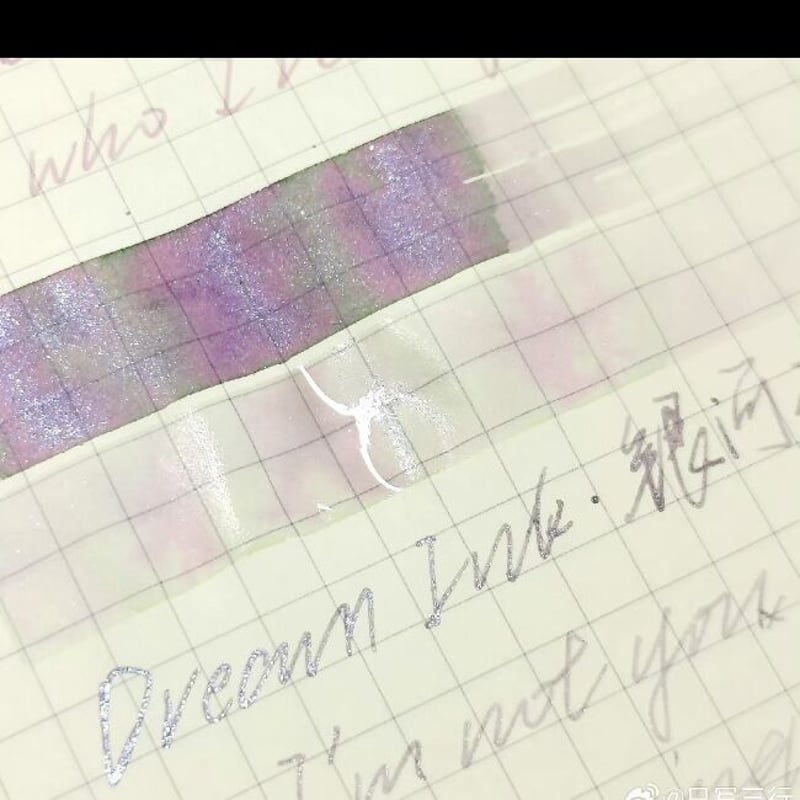 who I
Dream Ink · 银河
I'm not you
@只写三行